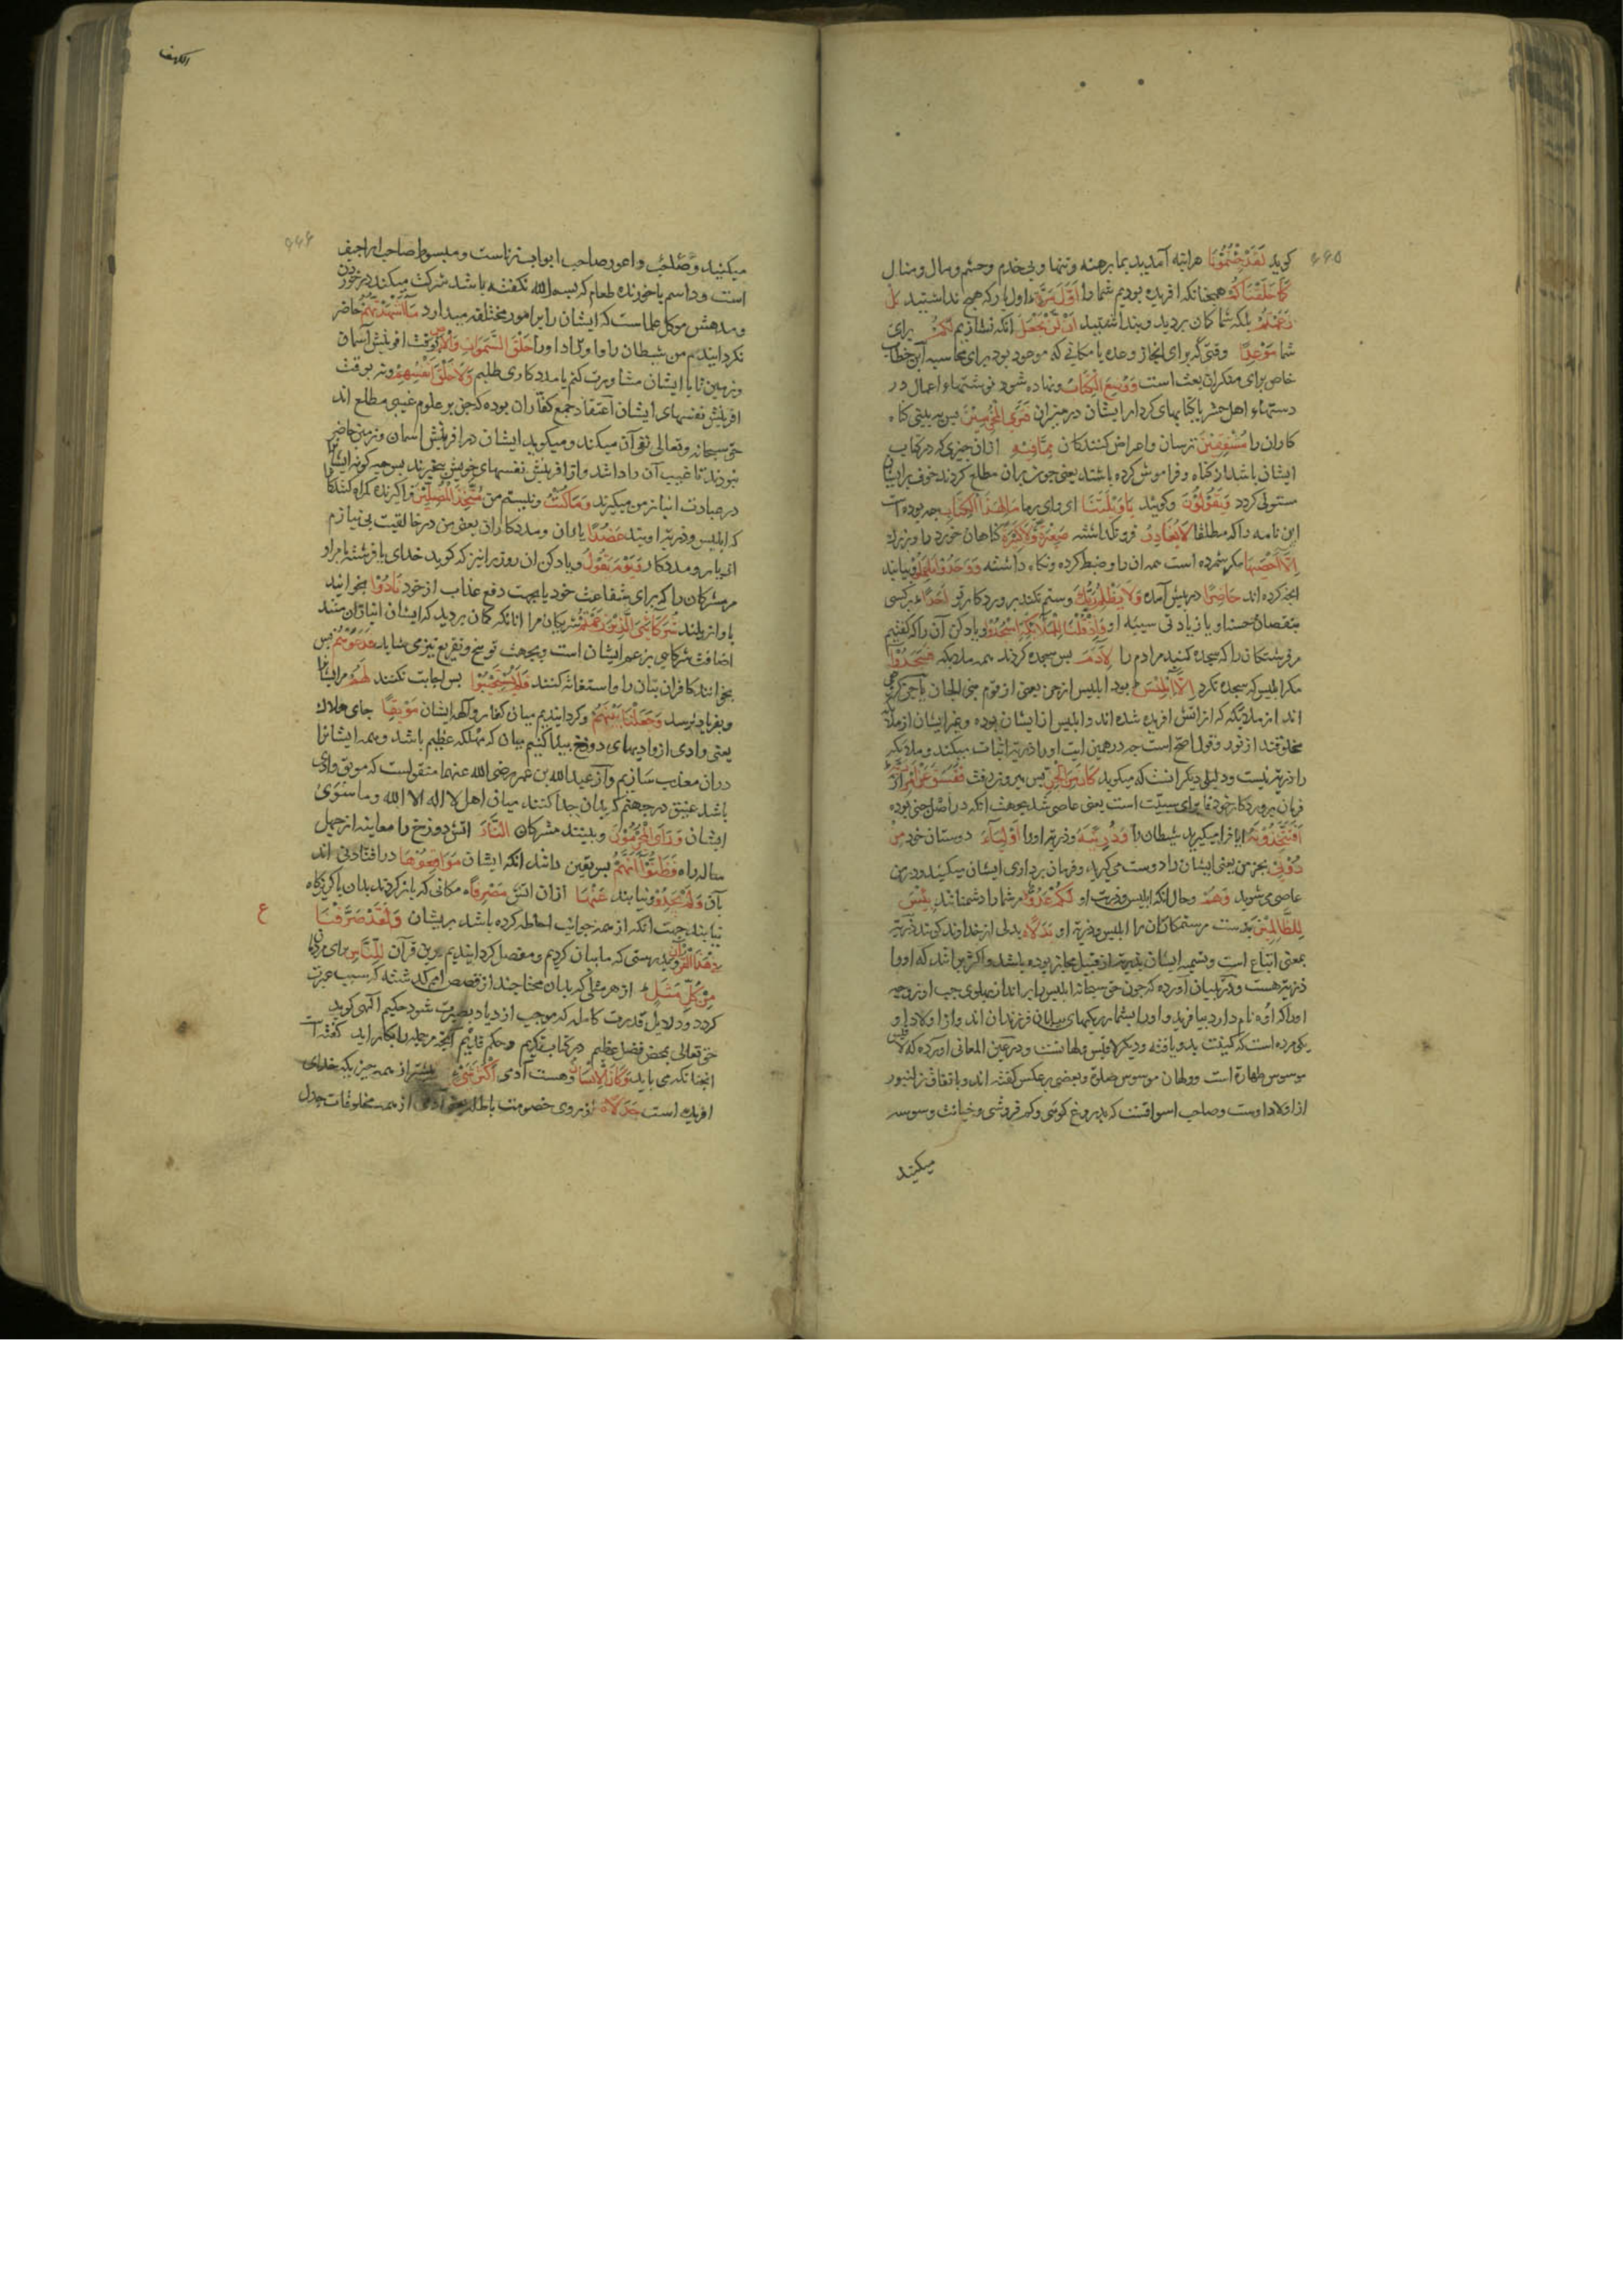 ۶۶۵
کوید لَقَدْ جِئْتُمُونَا هراینه آمدید بما برهنه و تنها و بی خدم و حشم و مال و منال
كَمَا خَلَقْنَاكُمْ همچنانکه افریده بودیم شما را اَوَّلَ مَرَّةٍ اول بار که هیچ نداشتید بَلْ
زَعَمْتُمْ بلکه شما کمان بردید و پنداشتید اَنْ لَنْ نَجْعَلَ انکه نسازیم لَكُمْ برای
شما مَوْعِدًا وقتی که برای انجاز وعده یا مکانی که موجود بود برای محاسبه این خطاب
خاص برای منکران بعث است وَوُضِعَ الْكِتَابُ و نهاده شود نوشتهاء اعمال در
دستهاء اهل حشر یا کتابهای کردار ایشان در میزان فَتَرَى الْمُجْرِمِينَ پس ببینی کناه
کاران را مُشْفِقِينَ ترسان و اعراض کنندکان مِمَّا فِيهِ ازان چیزی که در کتاب
ایشان باشد از کناه و فراموش کرده باشند یعنی چون بران مطلع کردند خوف بر ایشان
مستولی کردد وَيَقُولُونَ و کویند يَا وَيْلَتَنَا ای وای بر ما مَا لِهَذَا الْكِتَابِ چه بوده است
این نامه را که مطلقا لَا يُغَادِرُ فرو نکذاشته صَغِيرَةً وَلَا كَبِيرَةً کناهان خورد را و بزرک
اِلَّا اَحْصَيهَا مکر شمرده است همه ان را و ضبط کرده و نکاه داشته وَوَجَدُوا مَا عَمِلُوا و بیابند
انچه کرده اند حَاضِرًا در پیش آماده وَلَا يَظْلِمُ رَبُّكَ و ستم نکند پروردکار تو اَحَدًا بر کسی
بنقصان حسنا و یا زیادتی سیئه او وَاِذْ قُلْنَا لِلْمَلَائِكَةِ اسْجُدُوا و یاد کن آن را که کفتیم
مر فرشتکان را که سجده کنید مرادم را لِآدَمَ پس سجده کردند همه ملایکه فَسَجَدُوا
مکر ابلیس که سجده نکرد اِلَّا اِبْلِيسَ بود ابلیس از جن یعنی از قوم جنی الجان
اند از ملائکه که از اتش افریده شده اند و ابلیس از ایشان بوده و بغیر ایشان از ملائکه
مخلوقند از نور و قول اصح است چه در همین ایت او را ذریة اثبات میکند و ملائکه
را ذریة نیست و دلیلی دیکر انست که میکوید كَانَ مِنَ الْجِنِّ پس بیرون رفت فَفَسَقَ عَنْ اَمْرِ رَبِّهِ از
فرمان پروردکار خود فا برای سببیت است یعنی عاصی شد بجهت انکه در اصل جنی بوده
اَفَتَتَّخِذُونَهُ ایا فرا میکیرید شیطان را وَذُرِّيَّتَهُ و ذریة او را اَوْلِيَاءَ دوستان خود مِنْ
دُونِي بجز من یعنی ایشان را دوست می کیرید و فرمان برداری ایشان میکنید و در من
عاصی می شوید وَهُمْ و حال انکه ابلیس و ذریت او لَكُمْ عَدُوٌّ مر شما را دشمنانند بِئْسَ
لِلظَّالِمِينَ بد ست مر ستمکاران را ابلیس و ذریة او بَدَلًا بدلی از خداوند کویند ذریة
بمعنی اتباع است و تسمیه ایشان بذریة از قبیل مجاز بوده باشد و اکثر برانند که او را
ذریة هست و در تبیان آورده که چون حق سبحانه ابلیس را براند از پهلوی چپ او زوجه
او را که اوه نام دارد بیافرید و او را بشمار ریکهای بیابان فرزندان اند و از اولاد او
یکی مرده است که کنیت بدو یافته و دیکر لاقیس و لهانست و در عین المعانی اورده که لاقیس
موسوس طهارة است و ولهان موسوس صلوة و بعضی بر عکس کفته اند و باتفاق زلنبور
از اولاد اوست و صاحب اسواقست که بدروغ کوئی و کم فروشی و خیانت وسوسه
میکند
الکهف
۶۶۶
میکنید و اعور صاحب ابواب زناست و مبسوط صاحب اراجیف
است و داسم با خورنده طعام که بسم الله نکفته باشد شرکت میکند در خوردن
و مدهش موکل علماست که ایشان را بر امور مختلفه میدارد مَا اَشْهَدْتُهُمْ حاضر
نکردانیدم من شیطان را و اولاد او را خَلْقَ السَّمَوَاتِ وَالْاَرْضِ وقت افرینش آسمان
و زمین تا با ایشان مشاورت کنم یا مددکاری طلبم وَلَا خَلْقَ اَنْفُسِهِمْ و نه بوقت
افرینش نفسهای ایشان اعتقاد جمع کفاران بوده که جن بر علوم غیبی مطلع اند
حق سبحانه و تعالی نفی آن میکند و میکوید ایشان در افرینش اسمان و زمین حاضر
نبودند تا غیب آن را دانند و از افرینش نفسهای خویش بیخبرند پس چه کونه ایشانرا
در عبادت انباز من میکیرند وَمَا كُنْتُ و نیستم من مُتَّخِذَ الْمُضِلِّينَ فراکیرنده کمراه کنندکان
که ابلیس و ذریة اویند عَضُدًا یاران و مددکاران یعنی من در خالقیت بی نیازم
از یار و مددکار وَيَوْمَ يَقُولُ و یاد کن ان روز را نیز که کوید خدای یا فرشته بامر او
مر مشرکان را که برای شفاعت خود یا بجهت دفع عذاب از خود نَادُوا بخوانید
باواز بلند شُرَكَائِيَ الَّذِينَ زَعَمْتُمْ شریکان مرا انانکه کمان بردید که ایشان انبازان منند
اضافت شرکاءی بزعم ایشان است و بجهت توبیخ و تقریع نیز می شاید فَدَعَوْهُمْ پس
بخوانند کافران بتان را و استغاثه کنند فَلَمْ يَسْتَجِيبُوا پس اجابت نکنند لَهُمْ مر ایشانرا
و بفریاد نرسد وَجَعَلْنَا بَيْنَهُمْ و کردانیدیم میان کفار و الهه ایشان مَوْبِقًا جای هلاک
یعنی وادی از وادیهای دوزخ پیدا کنیم میان که مهلکه عظیم باشد و همه ایشانرا
دران معذب سازیم و از عبدالله بن عمر رضی الله عنهما منقولست که موبق وادی
باشد عمیق در جهنم که بدان جدا کنند میان اهل لا اله الا الله و ما سوی
ایشان وَرَاَى الْمُجْرِمُونَ و ببینند مشرکان النَّارَ اتش دوزخ را معاینه از چهل
ساله راه فَظَنُّوا اَنَّهُمْ پس یقین دانند انکه ایشان مُوَاقِعُوهَا در افتادنی اند
بآن وَلَمْ يَجِدُوا و نیابند عَنْهَا ازان اتش مَصْرِفًا مکانی که باز کردند بدان یا کریزکاه
ع
نیابند جهت انکه از همه جوانب احاطه کرده باشد بریشان وَلَقَدْ صَرَّفْنَا
فِي هَذَا الْقُرْآنِ و بدرستی که ما بیان کردیم و مفصل کردانیدیم درین قرآن لِلنَّاسِ برای مردمان
مِنْ كُلِّ مَثَلٍ از هر مثلی که بدان محتاجند از قصص امم کذشته که سبب عبرت
کردد و دلایل قدرت کامله که موجب ازدیاد بصیرت شود حکیم الهی کوید
حق تعالی بمحض فضل عظیم در کتاب کریم و حکم قدیم انچه مر جمله را بکار اید کفته است
انچنانکه می باید وَكَانَ الْاِنْسَانُ و هست آدمی اَكْثَرَ شَيْءٍ بیشتر از همه چیز یکه خدای
افریده است جَدَلًا از روی خصومت باطله یعنی آدمی از همه مخلوقات جدل